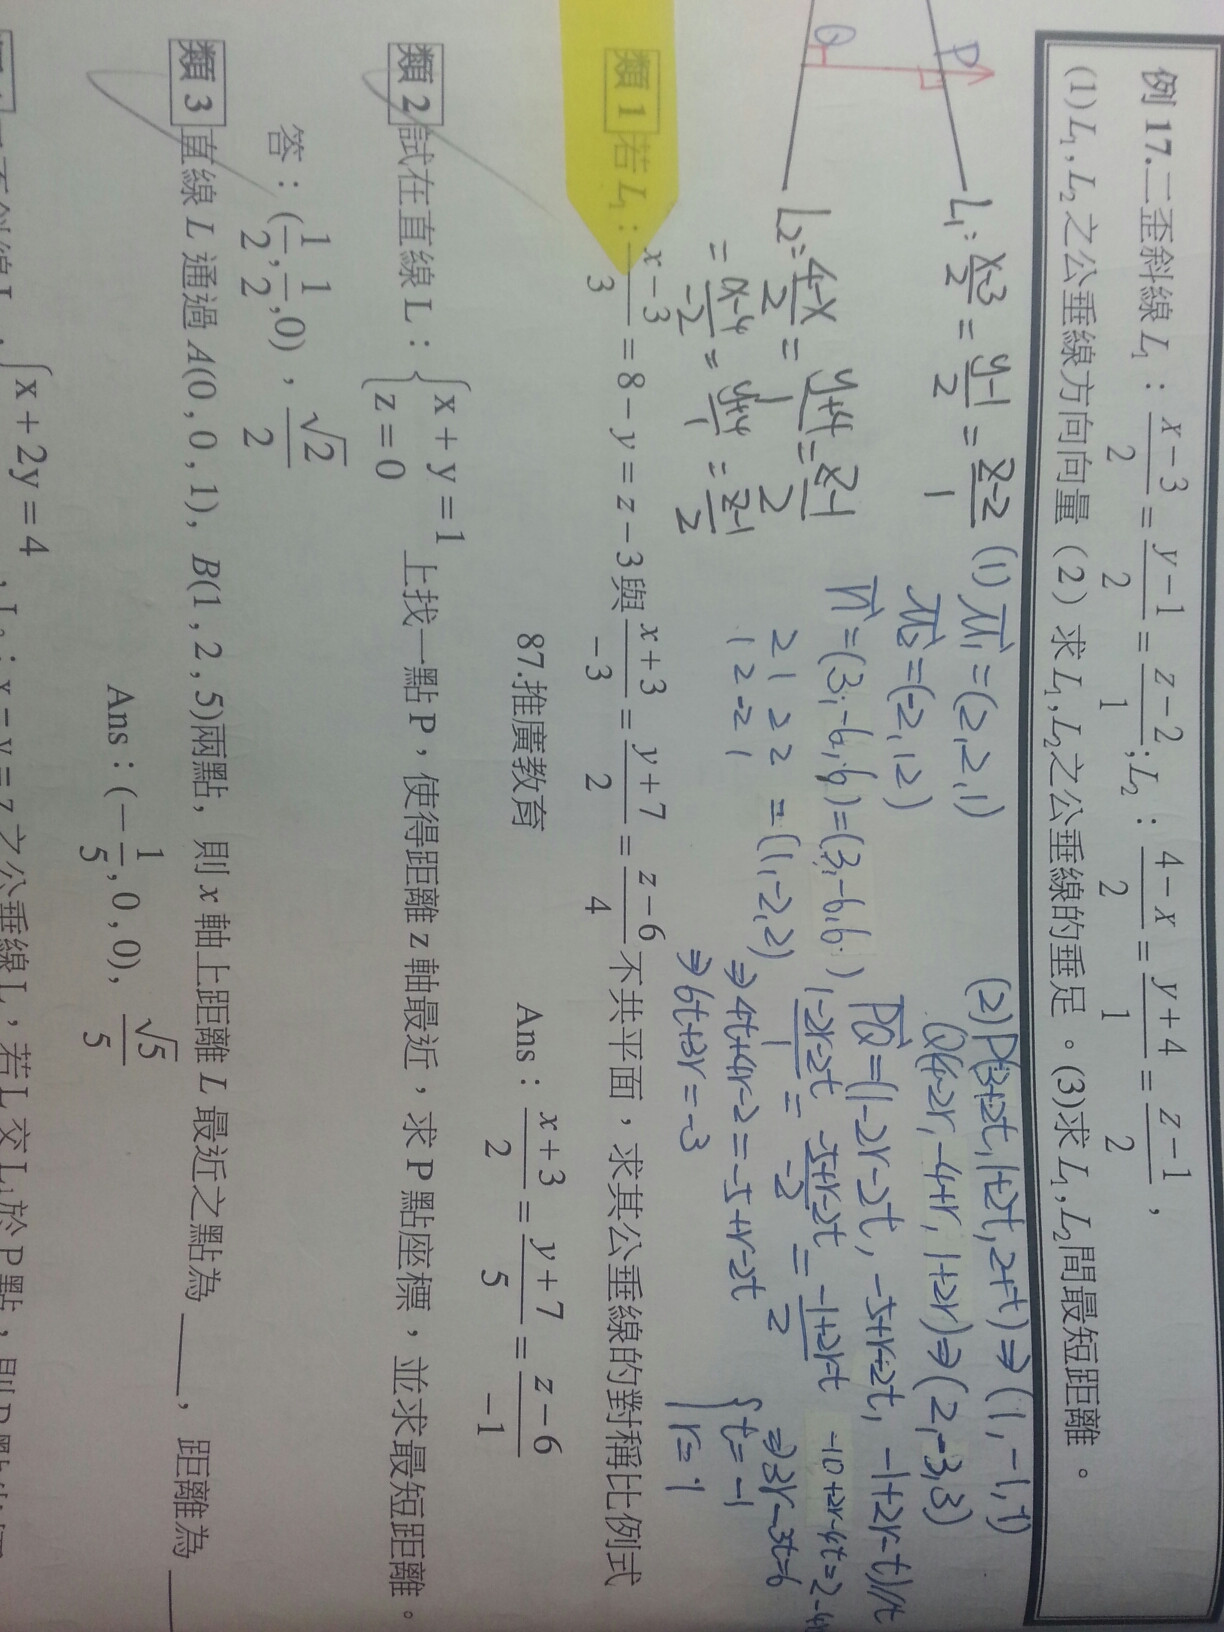 例 17.二歪斜線 L₁：(x−3)/2 = (y−1)/2 = (z−2)/1；L₂：(4−x)/2 = (y+4)/1 = (z−1)/2，
(1) L₁, L₂ 之公垂線方向向量（2）求 L₁, L₂之公垂線的垂足。(3)求 L₁, L₂間最短距離。
P
Q
L₁: (x-3)/2 = (y-1)/2 = (z-2)/1
L₂: (4-x)/2 = (y+4)/1 = (z-1)/2
= (x-4)/-2 = (y+4)/1 = (z-1)/2
(1) u₁ = (2,2,1)
u₂ = (-2,1,2)
n = (3,-6,6) = (3,-6,6)
2 1 2 2
1 2 -2 1
= (1,-2,2)
(2) P(3+2t, 1+2t, 2+t) ⇒ (1,-1,1)
Q(4-2r, -4+r, 1+2r) ⇒ (2,-3,3)
PQ = (1-2r-2t, -5+r-2t, -1+2r-t) //
(1-2r-2t)/1 = (-5+r-2t)/-2 = (-1+2r-t)/2
-10+2r-4t=2-4r
⇒ 4t+4r-2 = -5+r-2t
⇒ 3r-3t=6
⇒ 6t+3r = -3
{ t = -1
r = 1
類 1 若 L₁：(x−3)/3 = 8−y = z−3與(x+3)/−3 = (y+7)/2 = (z−6)/4 不共平面，求其公垂線的對稱比例式
87.推廣教育
Ans：(x+3)/2 = (y+7)/5 = (z−6)/−1
類 2 試在直線 L：{ x+y=1
z=0 上找一點 P，使得距離 z 軸最近，求 P 點座標，並求最短距離。
答：(1/2, 1/2, 0)，√2/2
類 3 直線 L 通過 A(0, 0, 1), B(1, 2, 5)兩點，則 x 軸上距離 L 最近之點為 ____，距離為 ____
Ans：(−1/5, 0, 0), √5/5
{ x+2y=4 , L₂：x=y=z 之公垂線 L，若 L 交 L₁於 P 點，則